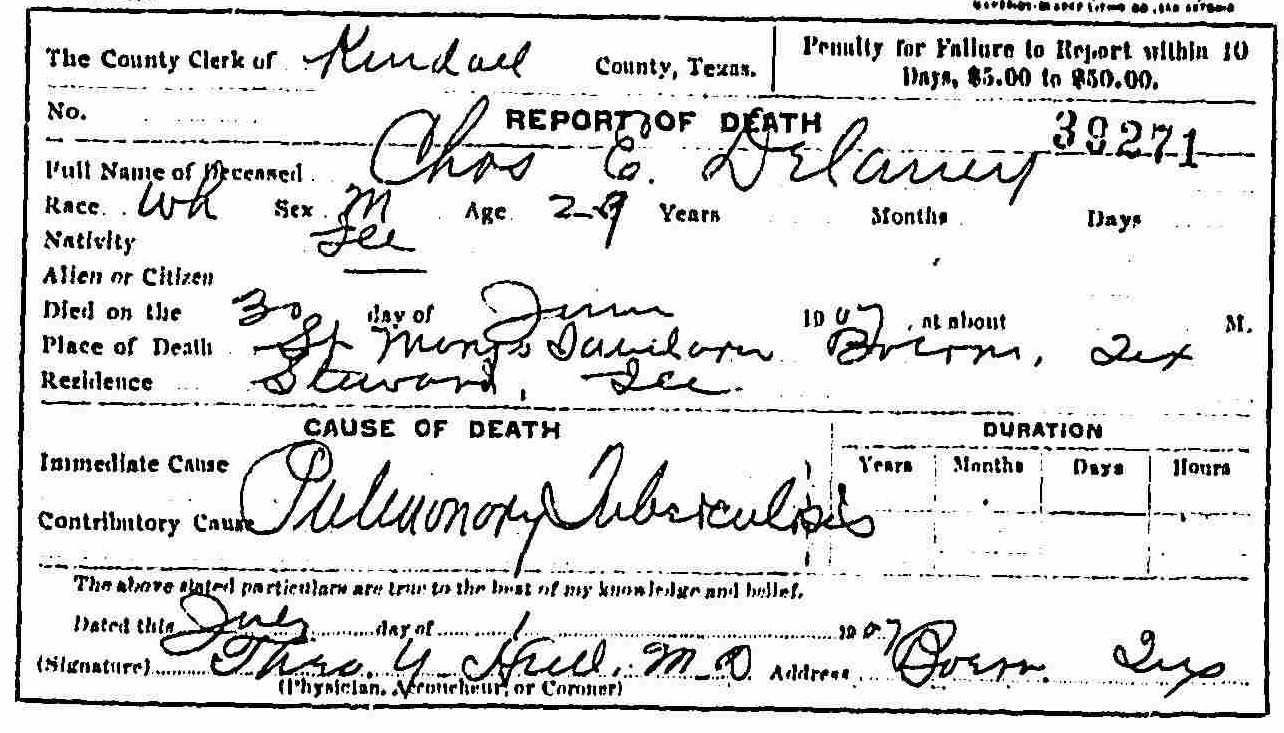 The County Clerk of Kendall County, Texas.
Penalty for Failure to Report within 10
Days, $5.00 to $50.00.
No.
REPORT OF DEATH
39271
Full Name of Deceased Chas E. Delaney
Race Wh Sex M Age 29 Years Months Days
Nativity Ill
Alien or Citizen
Died on the 30 day of June 1907, at about M.
Place of Death St Mary's Boerne, Tex
Residence Steward, Ill.
CAUSE OF DEATH
DURATION
Immediate Cause Pulmonary Tuberculosis
Years Months Days Hours
Contributory Cause
The above stated particulars are true to the best of my knowledge and belief.
Dated this July day of 1 1907
(Signature) Theo. Y M.D. Address Boern. Tex
(Physician, Accoucheur, or Coroner)